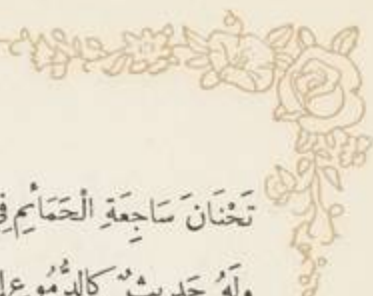 تَحْنَانَ سَاجِعَةِ الْحَمَائِمِ فِي
وَلَهُ حَدِيثٌ كَالدُّمُوعِ